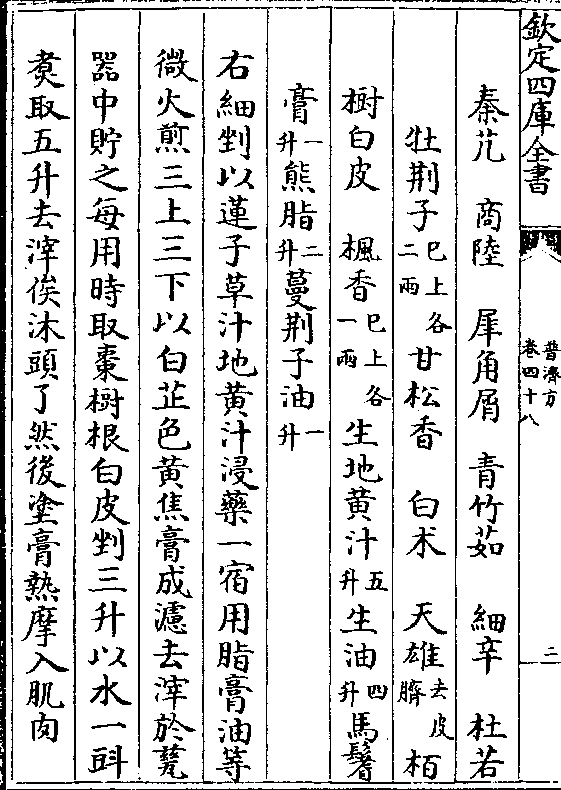 欽定四庫全書
普濟方
卷四十八
三
秦艽　商陸　犀角屑　青竹茹　細辛　杜若
牡荆子已上各二兩甘松香　白术　天雄去皮臍　栢
樹白皮　楓香已上各一兩　生地黄汁五升生油四升馬鬐
膏一升熊脂二升蔓荆子油一升
右細剉以蓮子草汁地黄汁浸藥一宿用脂膏油等
微火煎三上三下以白芷色黄焦膏成濾去滓於甆
器中貯之每用時取棗樹根白皮剉三升以水一㪷
煑取五升去滓俟沐頭了然後塗膏熱摩入肌肉